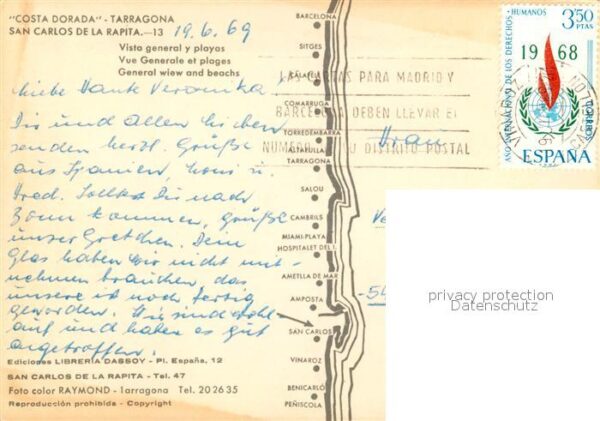 "COSTA DORADA" - TARRAGONA
SAN CARLOS DE LA RAPITA.—13 19.6.69
Vista general y playas
Vue Generale et plages
General wiew and beachs
Liebe Tante Veronika!
Dir und allen lieben
senden herzl. Grüße
aus Spanien, Hans u.
Hrad. Solltest Du nach
Bonn kommen, Grüße
unser Gretchen. Dein
Glas haben wir nicht mit-
nehmen brauchen, das
unsere ist noch fertig
geworden. Wir sind wohl-
auf und haben es gut
angetroffen.
Ediciones LIBRERIA DASSOY - Pl. España, 12
SAN CARLOS DE LA RAPITA - Tel. 47
Foto color RAYMOND - Tarragona Tel. 202635
Reproducción prohibida - Copyright
BARCELONA
SITGES
CALAFELL
COMARRUGA
TORREDEMBARRA
ALTAFULLA
TARRAGONA
SALOU
CAMBRILS
MIAMI-PLAYA
HOSPITALET DEL I.
AMETLLA DE MAR
AMPOSTA
SAN CARLOS
VINAROZ
BENICARLÓ
PEÑISCOLA
LAS CARTAS PARA MADRID Y
BARCELONA DEBEN LLEVAR EL
NUMERO DE SU DISTRITO POSTAL
Frau
Ve
-54
AÑO INTERNACIONAL DE LOS DERECHOS HUMANOS
3,50 PTAS
1968
CORREOS
ESPAÑA
privacy protection
Datenschutz